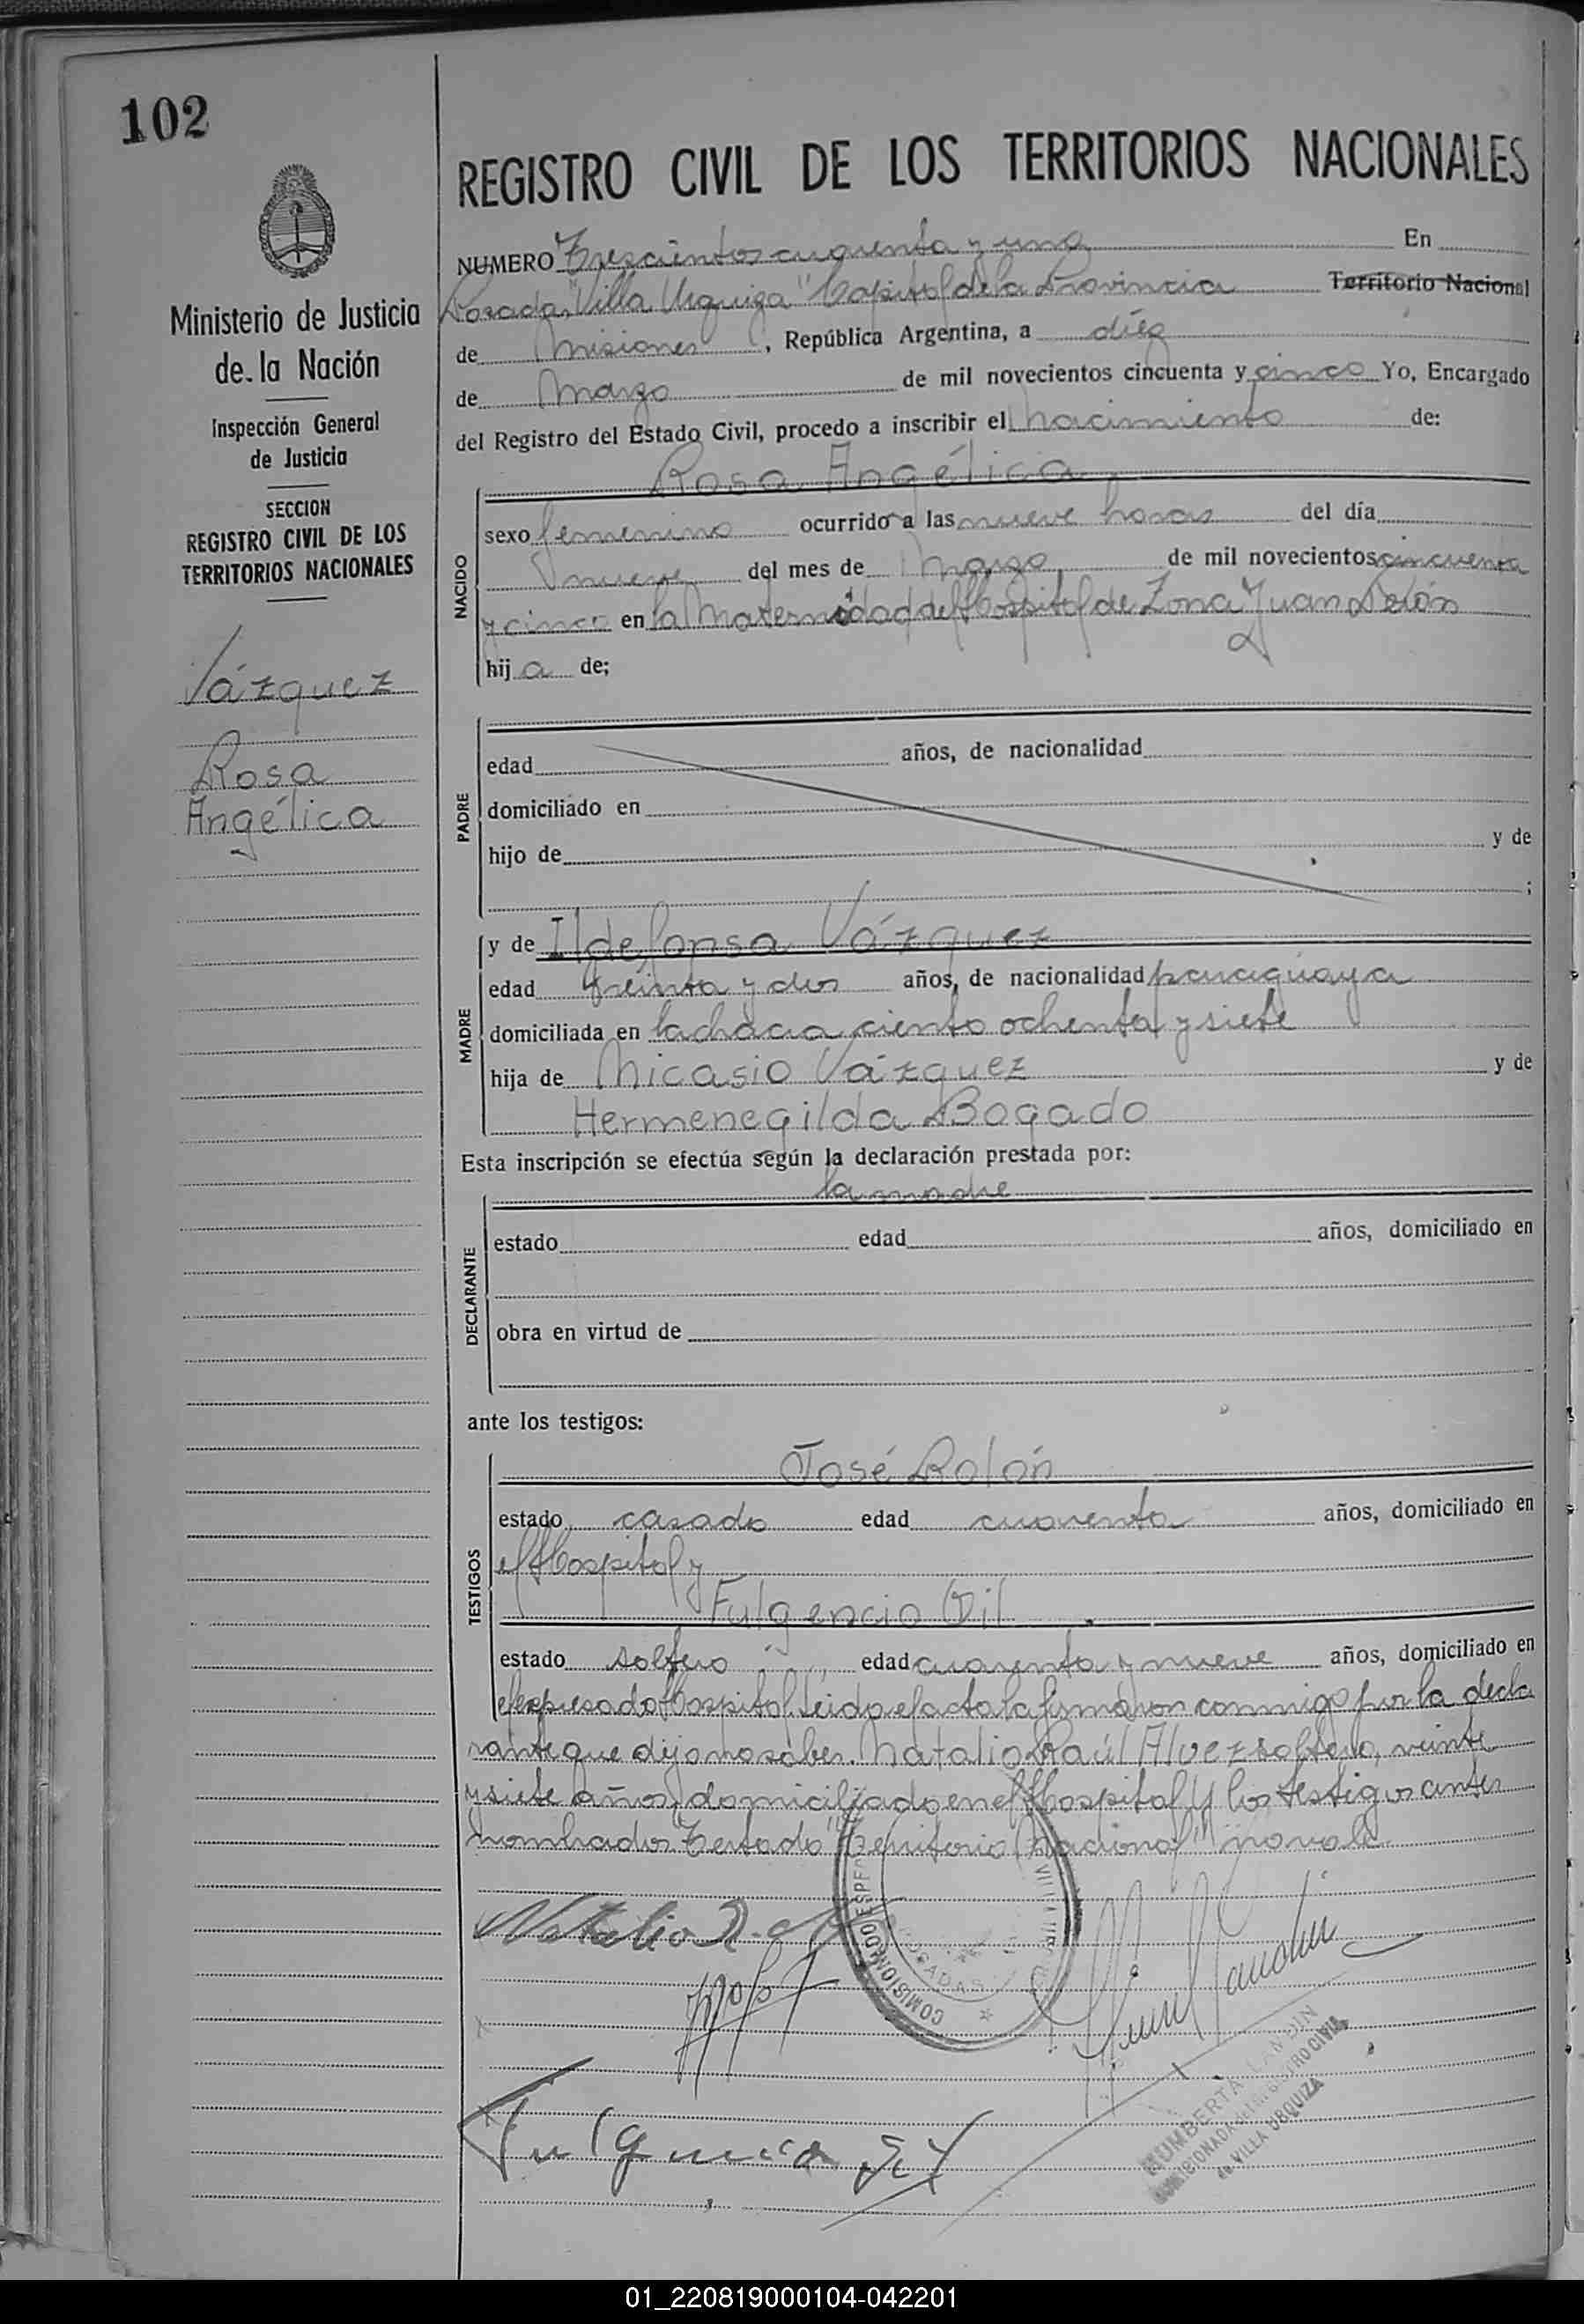 102
REGISTRO CIVIL DE LOS TERRITORIOS NACIONALES
Ministerio de Justicia
de la Nación
Inspección General
de Justicia
SECCION
REGISTRO CIVIL DE LOS
TERRITORIOS NACIONALES
Vázquez
Rosa
Angélica
NUMERO Trescientos cuarenta y uno En
Posadas, "Villa Urquiza" Capital de la Provincia Territorio Nacional
de Misiones, República Argentina, a diez
de Marzo de mil novecientos cincuenta y cinco Yo, Encargado
del Registro del Estado Civil, procedo a inscribir el nacimiento de:
Rosa Angélica
NACIDO
sexo femenino ocurrido a las nueve horas del día
nueve del mes de Marzo de mil novecientos cincuenta
y cinco en la Maternidad del Hospital de Zona Juan Perón
hij a de;
PADRE
edad años, de nacionalidad
domiciliado en
hijo de y de
;
MADRE
y de Ildefonsa Vázquez
edad treinta y dos años, de nacionalidad paraguaya
domiciliada en la chacra ciento ochenta y siete
hija de Nicasio Vázquez y de
Hermenegilda Bogado
Esta inscripción se efectúa según la declaración prestada por:
DECLARANTE
la madre
estado edad años, domiciliado en
obra en virtud de
ante los testigos:
TESTIGOS
José Rolón
estado casado edad cuarenta años, domiciliado en
el Hospital y
Fulgencio Gil
estado soltero edad cuarenta y nueve años, domiciliado en
el expresado Hospital. Leida el acta la firmaron conmigo por la decla
rante que dijo no saber. Natalio Raúl Alvez soltero, veinte
y siete años, domiciliado en el Hospital y los testigos antes
nombrados. Testado "Territorio Nacional" no vale.
Natalio R.
COMISIONADO
POSADAS
Fulgencio Gil
HUMBERTA LANDIN
COMISIONADA del REGISTRO CIVIL
de VILLA URQUIZA
01_220819000104-042201